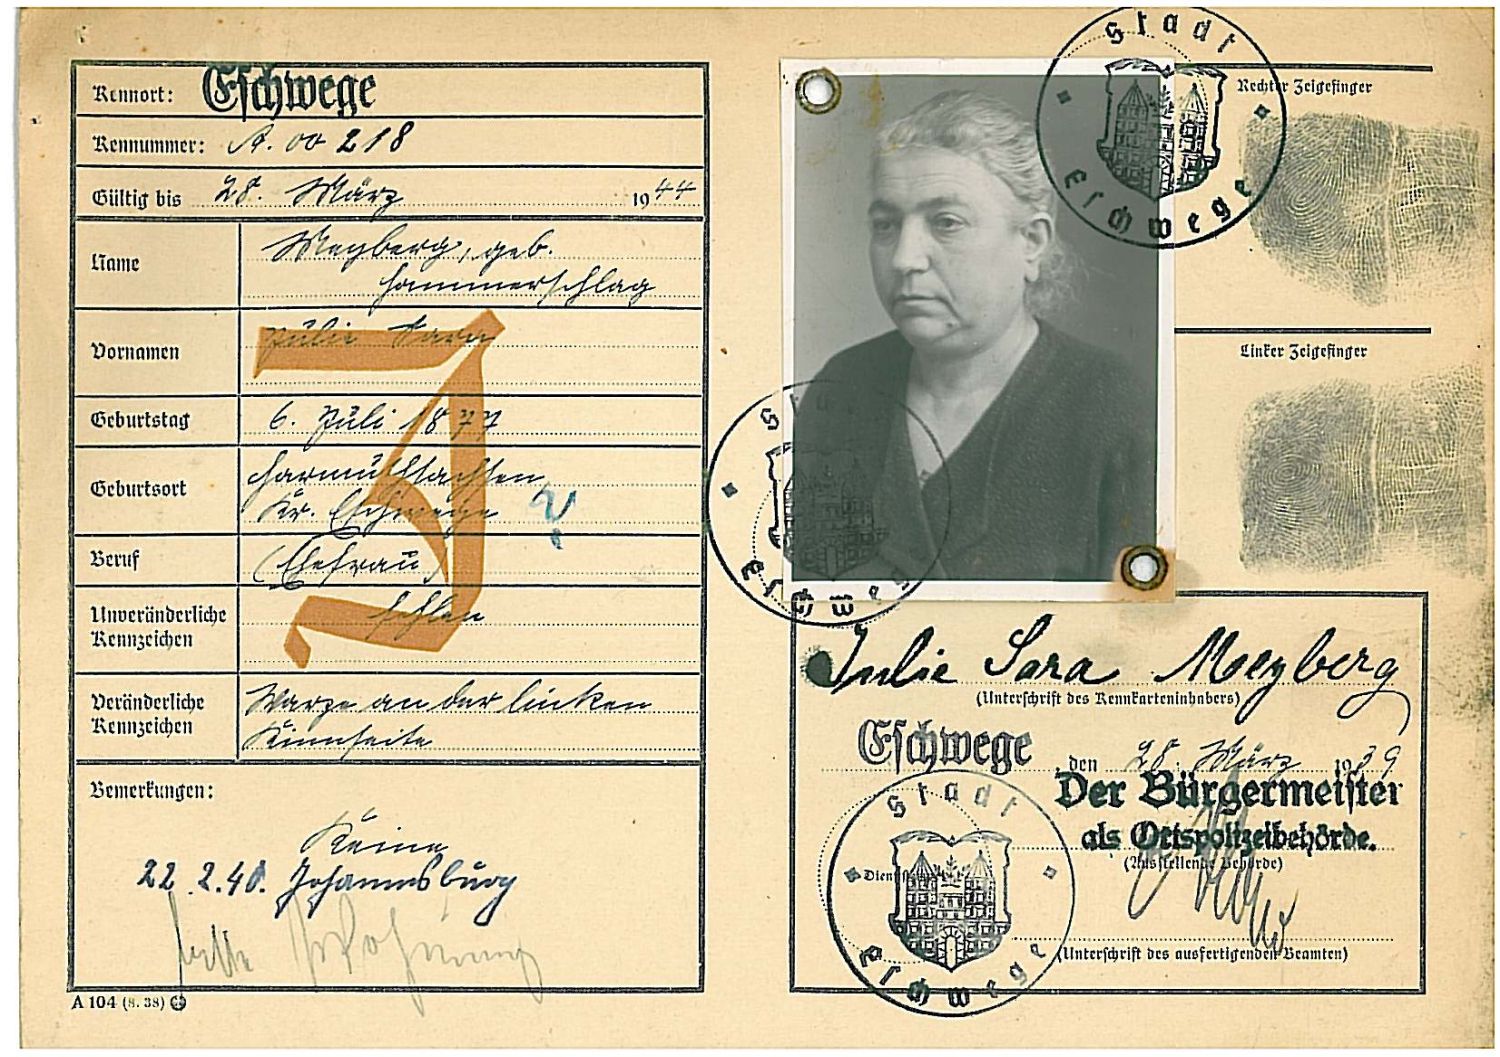 Kennort: Eschwege
Kennummer: A. 00 218
Gültig bis 28. März 1944
Name Meyberg, geb.
Hammerschlag
Vornamen Julie Sara
Geburtstag 6. Juli 1877
Geburtsort Harmuthsachsen
Kr. Eschwege ?
Beruf (Ehefrau)
Unveränderliche
Kennzeichen fehlen
Veränderliche
Kennzeichen Warze an der linken
Kinnseite
Bemerkungen:
Keine
22.2.40. Johannsburg
J
A 104 (8. 38)
Stadt
Eschwege
Rechter Zeigefinger
Linker Zeigefinger
Stadt
Eschwege
Julie Sara Meyberg
(Unterschrift des Kennkarteninhabers)
Eschwege, den 28. März 1939
Der Bürgermeister
als Ortspolizeibehörde.
(Ausstellende Behörde)
Stadt
Eschwege
(Unterschrift des ausfertigenden Beamten)